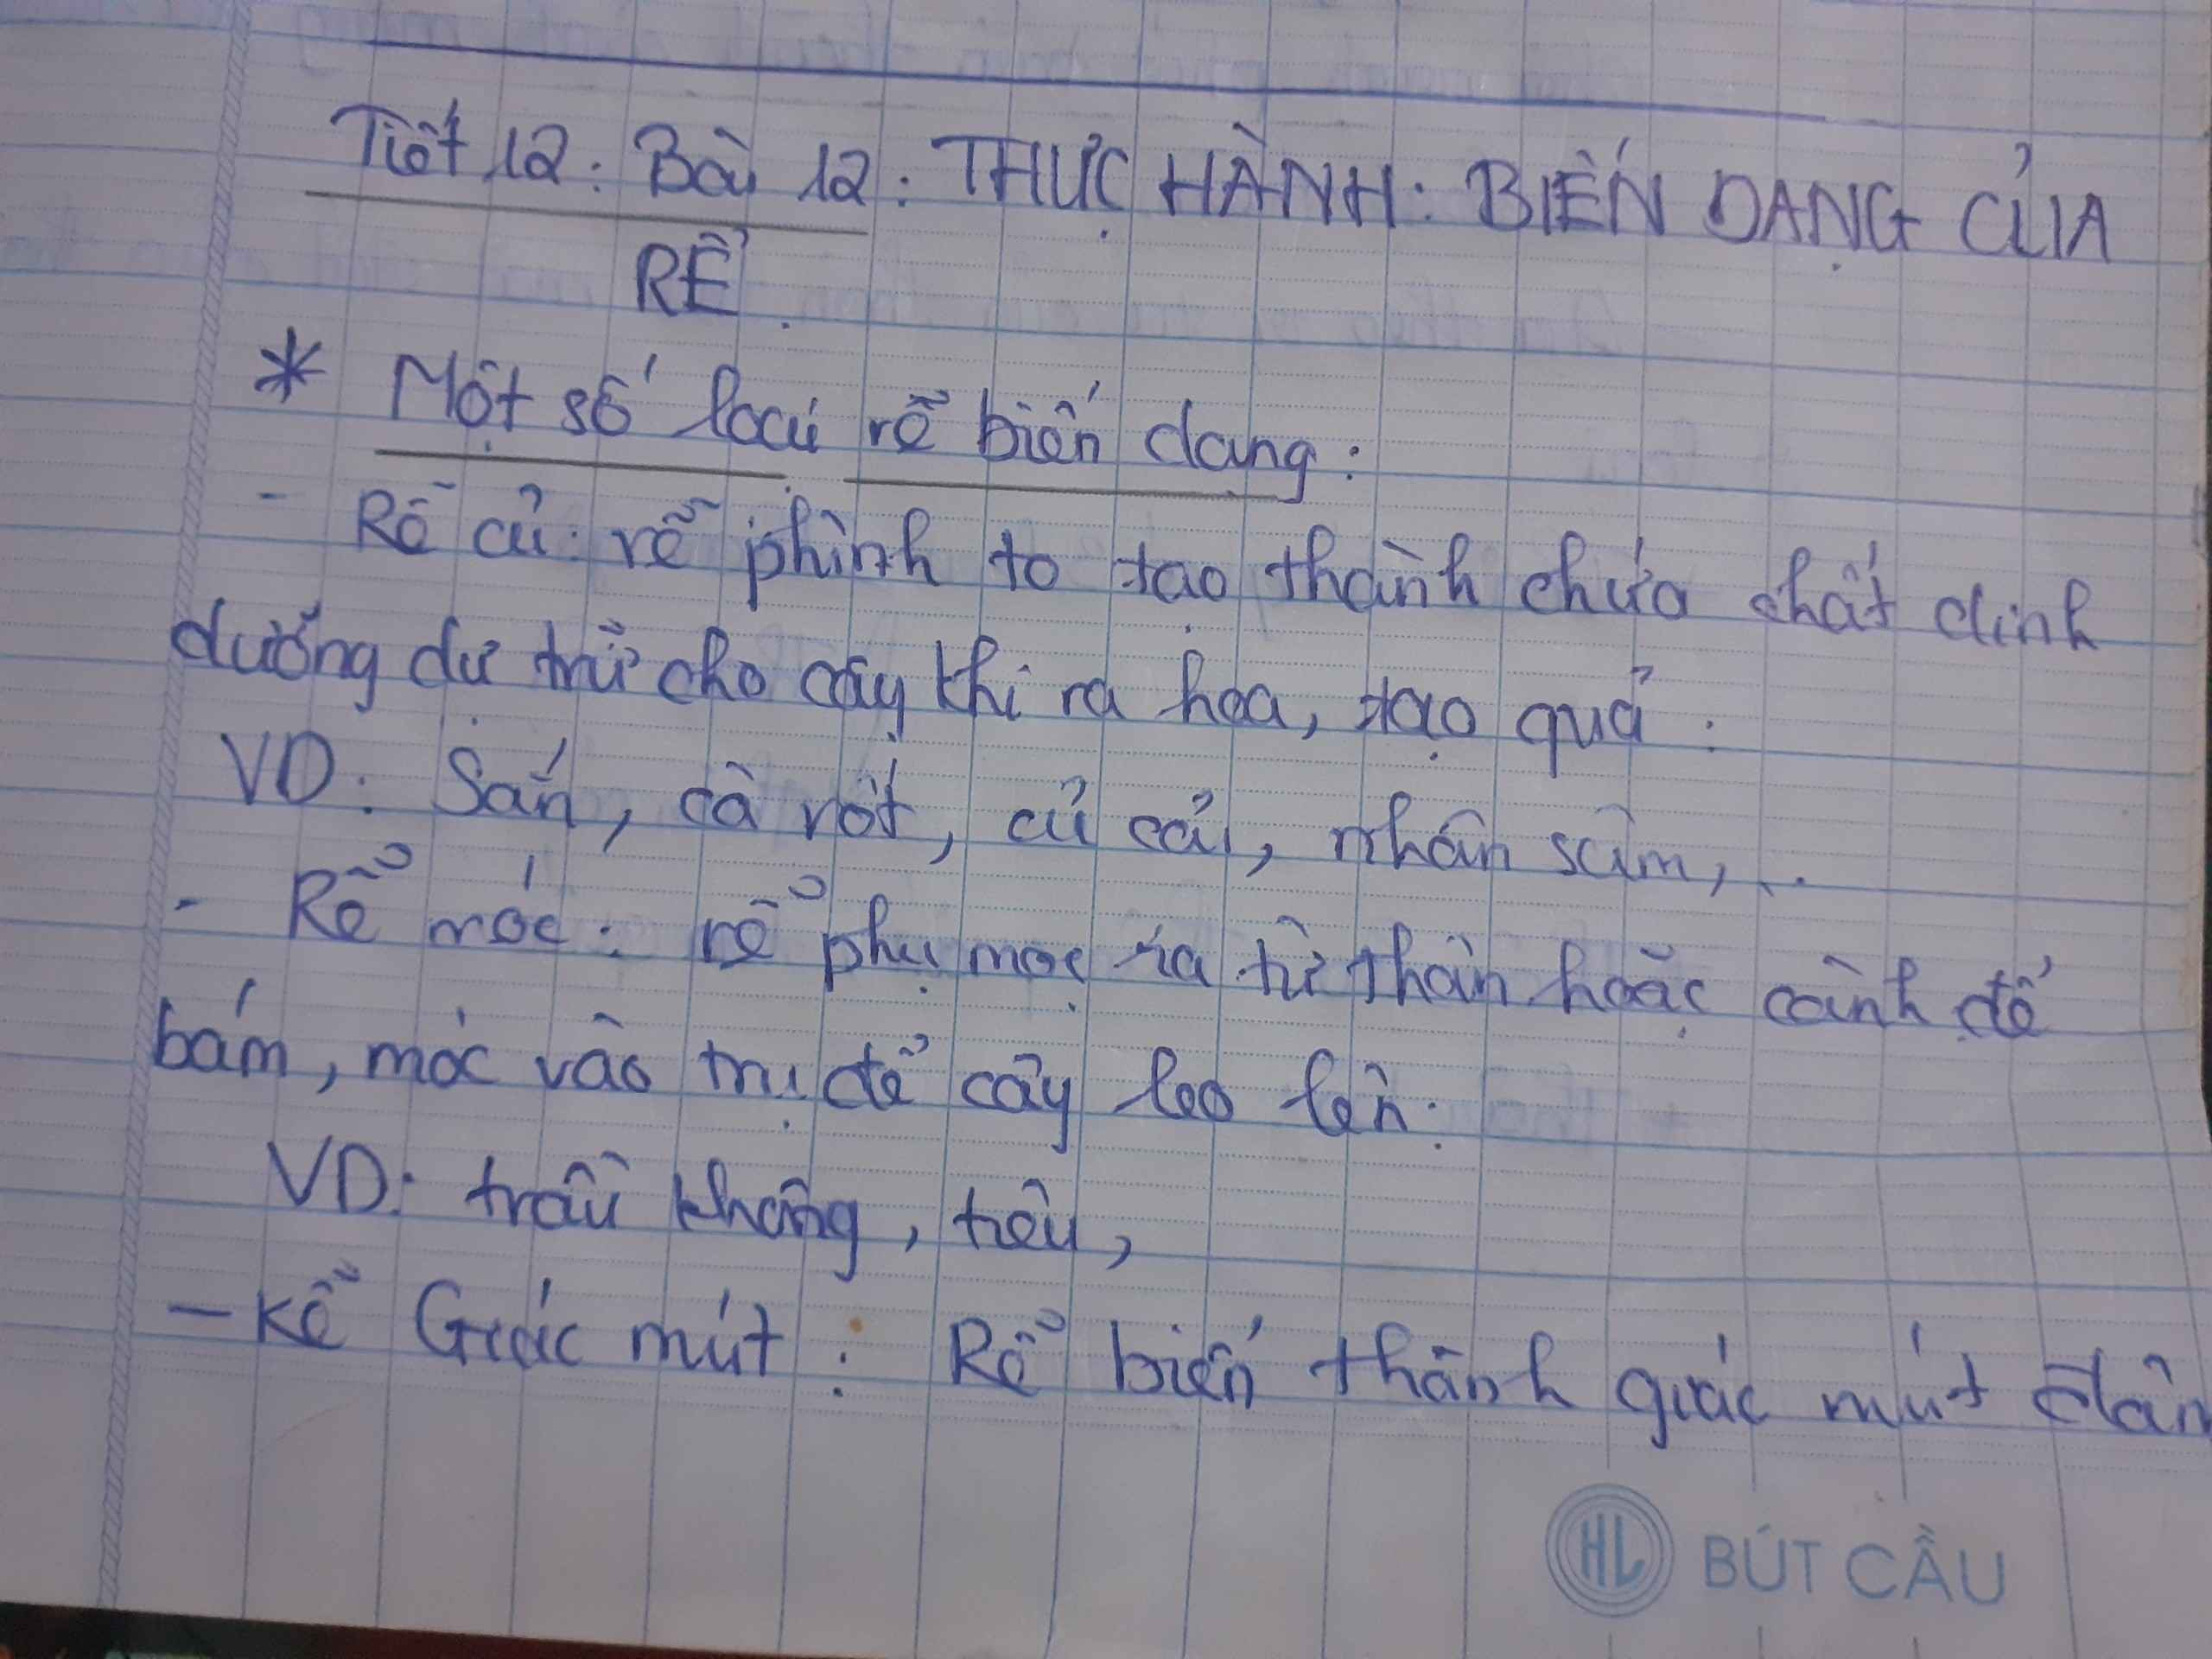 Tiết 12: Bài 12: THỰC HÀNH: BIẾN DẠNG CỦA
RỄ.
* Một số loại rễ biến dạng:
- Rễ củ: rễ phình to tạo thành chứa chất dinh
dưỡng dự trữ cho cây khi ra hoa, tạo quả.
VD: Sắn, cà rốt, củ cải, nhân sâm,...
- Rễ móc: rễ phụ mọc ra từ thân hoặc cành để
bám, móc vào trụ để cây leo lên.
VD: trầu không, tiêu,
- Rễ Giác mút: Rễ biến thành giác mút đâm
HL BÚT CẦU